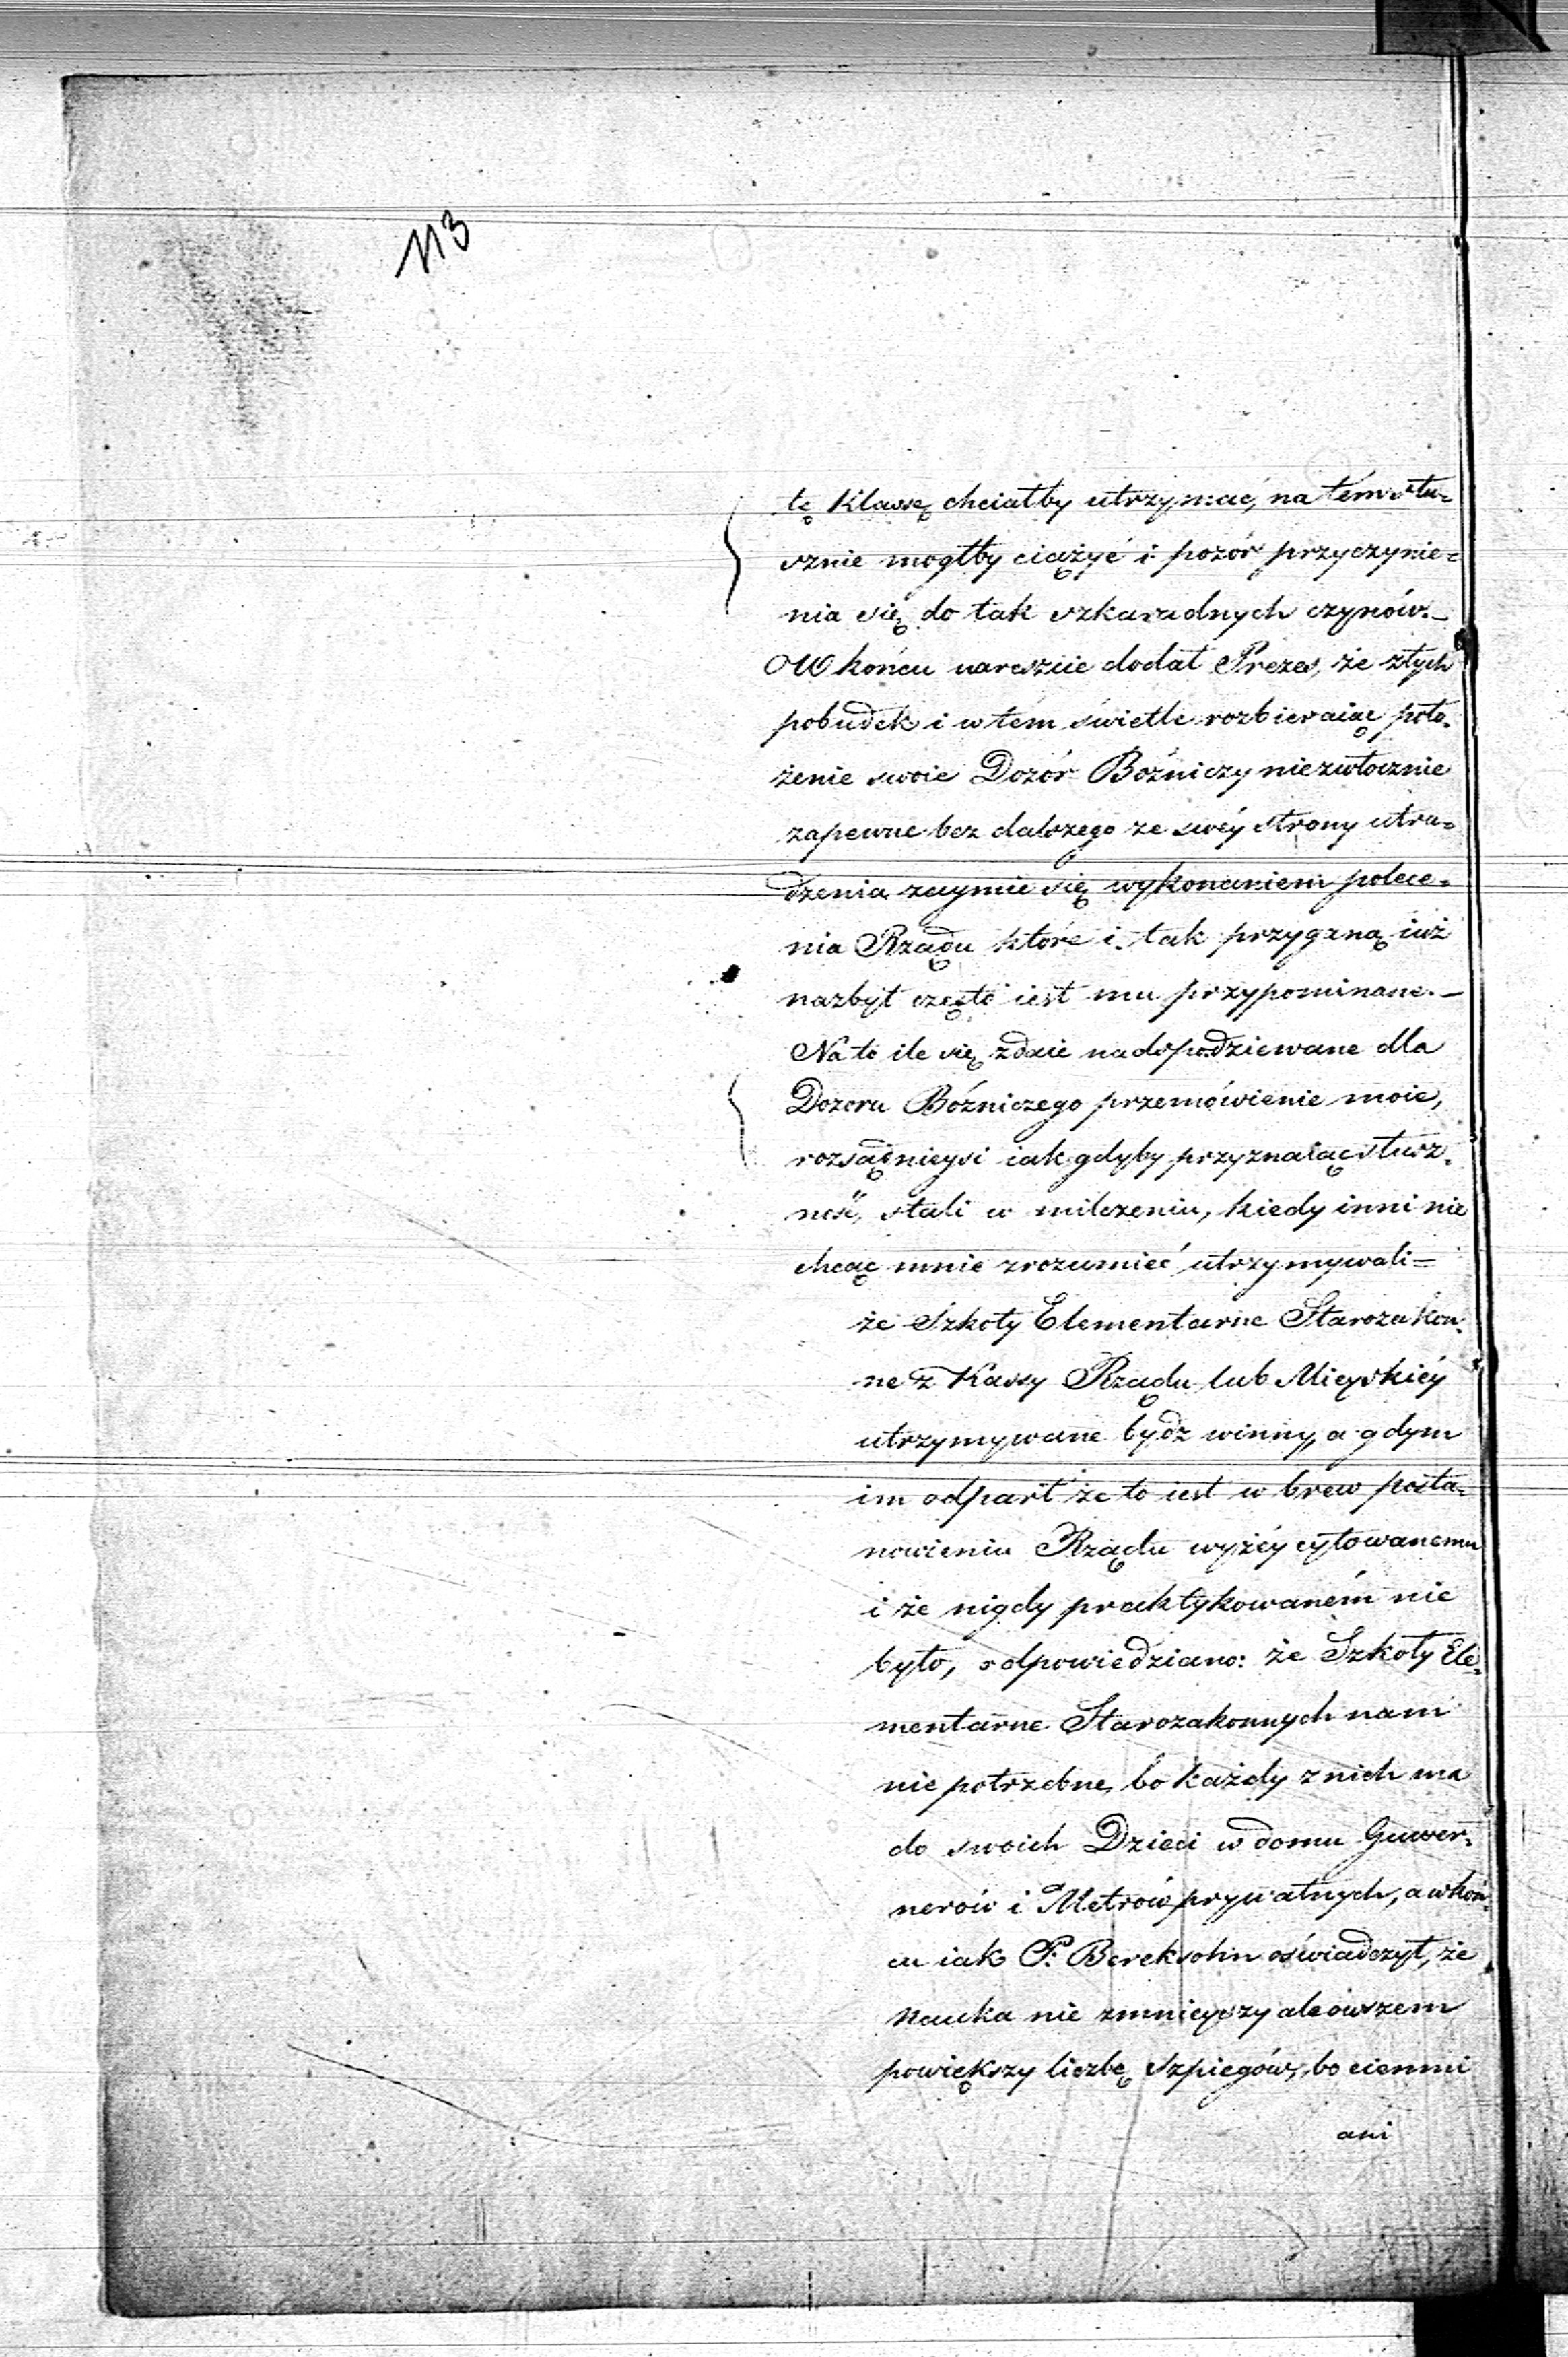 113
tę Klassę chciałby utrzymać, na tém słu=
sznie mogłby ciążyć i pozór przyczynie=
nia się do tak szkaradnych czynów._
W końcu nareszcie dodał Prezes, że z tych
pobudek i w tém świetle rozbieraiąc poło=
żenie swoie Dozór Bóżniczy niezwłocznie
zapewne bez dalszego ze swéy strony utru=
dzenia zaymie się wykonaniem polece=
nia Rządu które i tak przyganą iuż
nazbyt często iest mu przypominane._
Na to ile się zdaie nadspodziewane dla
Dozoru Bóżniczego przemówienie moie,
rozsądnieysi iak gdyby przyznaiąc słusz=
ność, stali w milczeniu, kiedy inni nie
chcąc mnie zrozumieć utrzymywali=
że Szkoły Elementarne Starozakon=
ne z Kassy Rządu lub Mieyskiéy
utrzymywane bydź winny, a gdym
im odparł że to iest w brew posta=
nowieniu Rządu wyżéy cytowanemu
i że nigdy praktykowaném nie
było, odpowiedziano: że Szkoły Ele=
mentarne Starozakonnych nam
nie potrzebne, bo każdy z nich ma
do swoich Dzieci w domu Guwer=
nerów i Metrów prywatnych, a w koń=
cu iak P. Bereksohn oświadczył, że
Nauka nie zmnieyszy ale owszem
powiększy liczbę Szpiegów, bo ciemni
ani